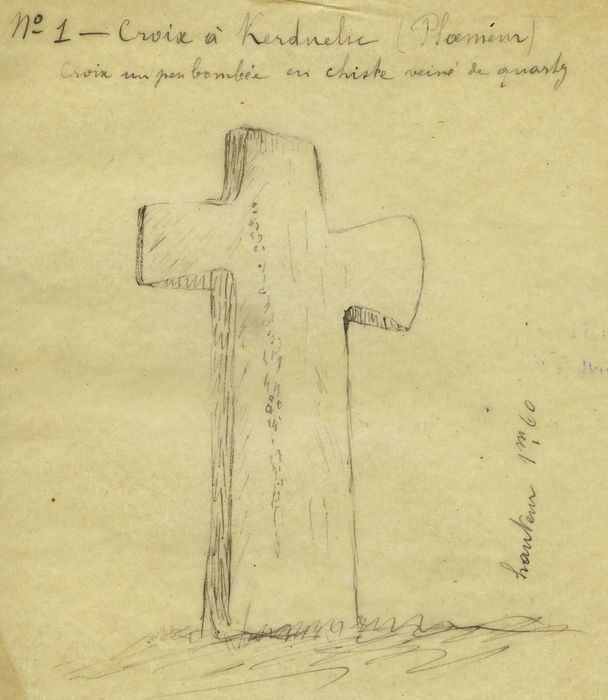 Nº 1 — Croix à Kerduelic (Ploeméur)
Croix un peu bombée en chiste veiné de quartz
hauteur 1m,60